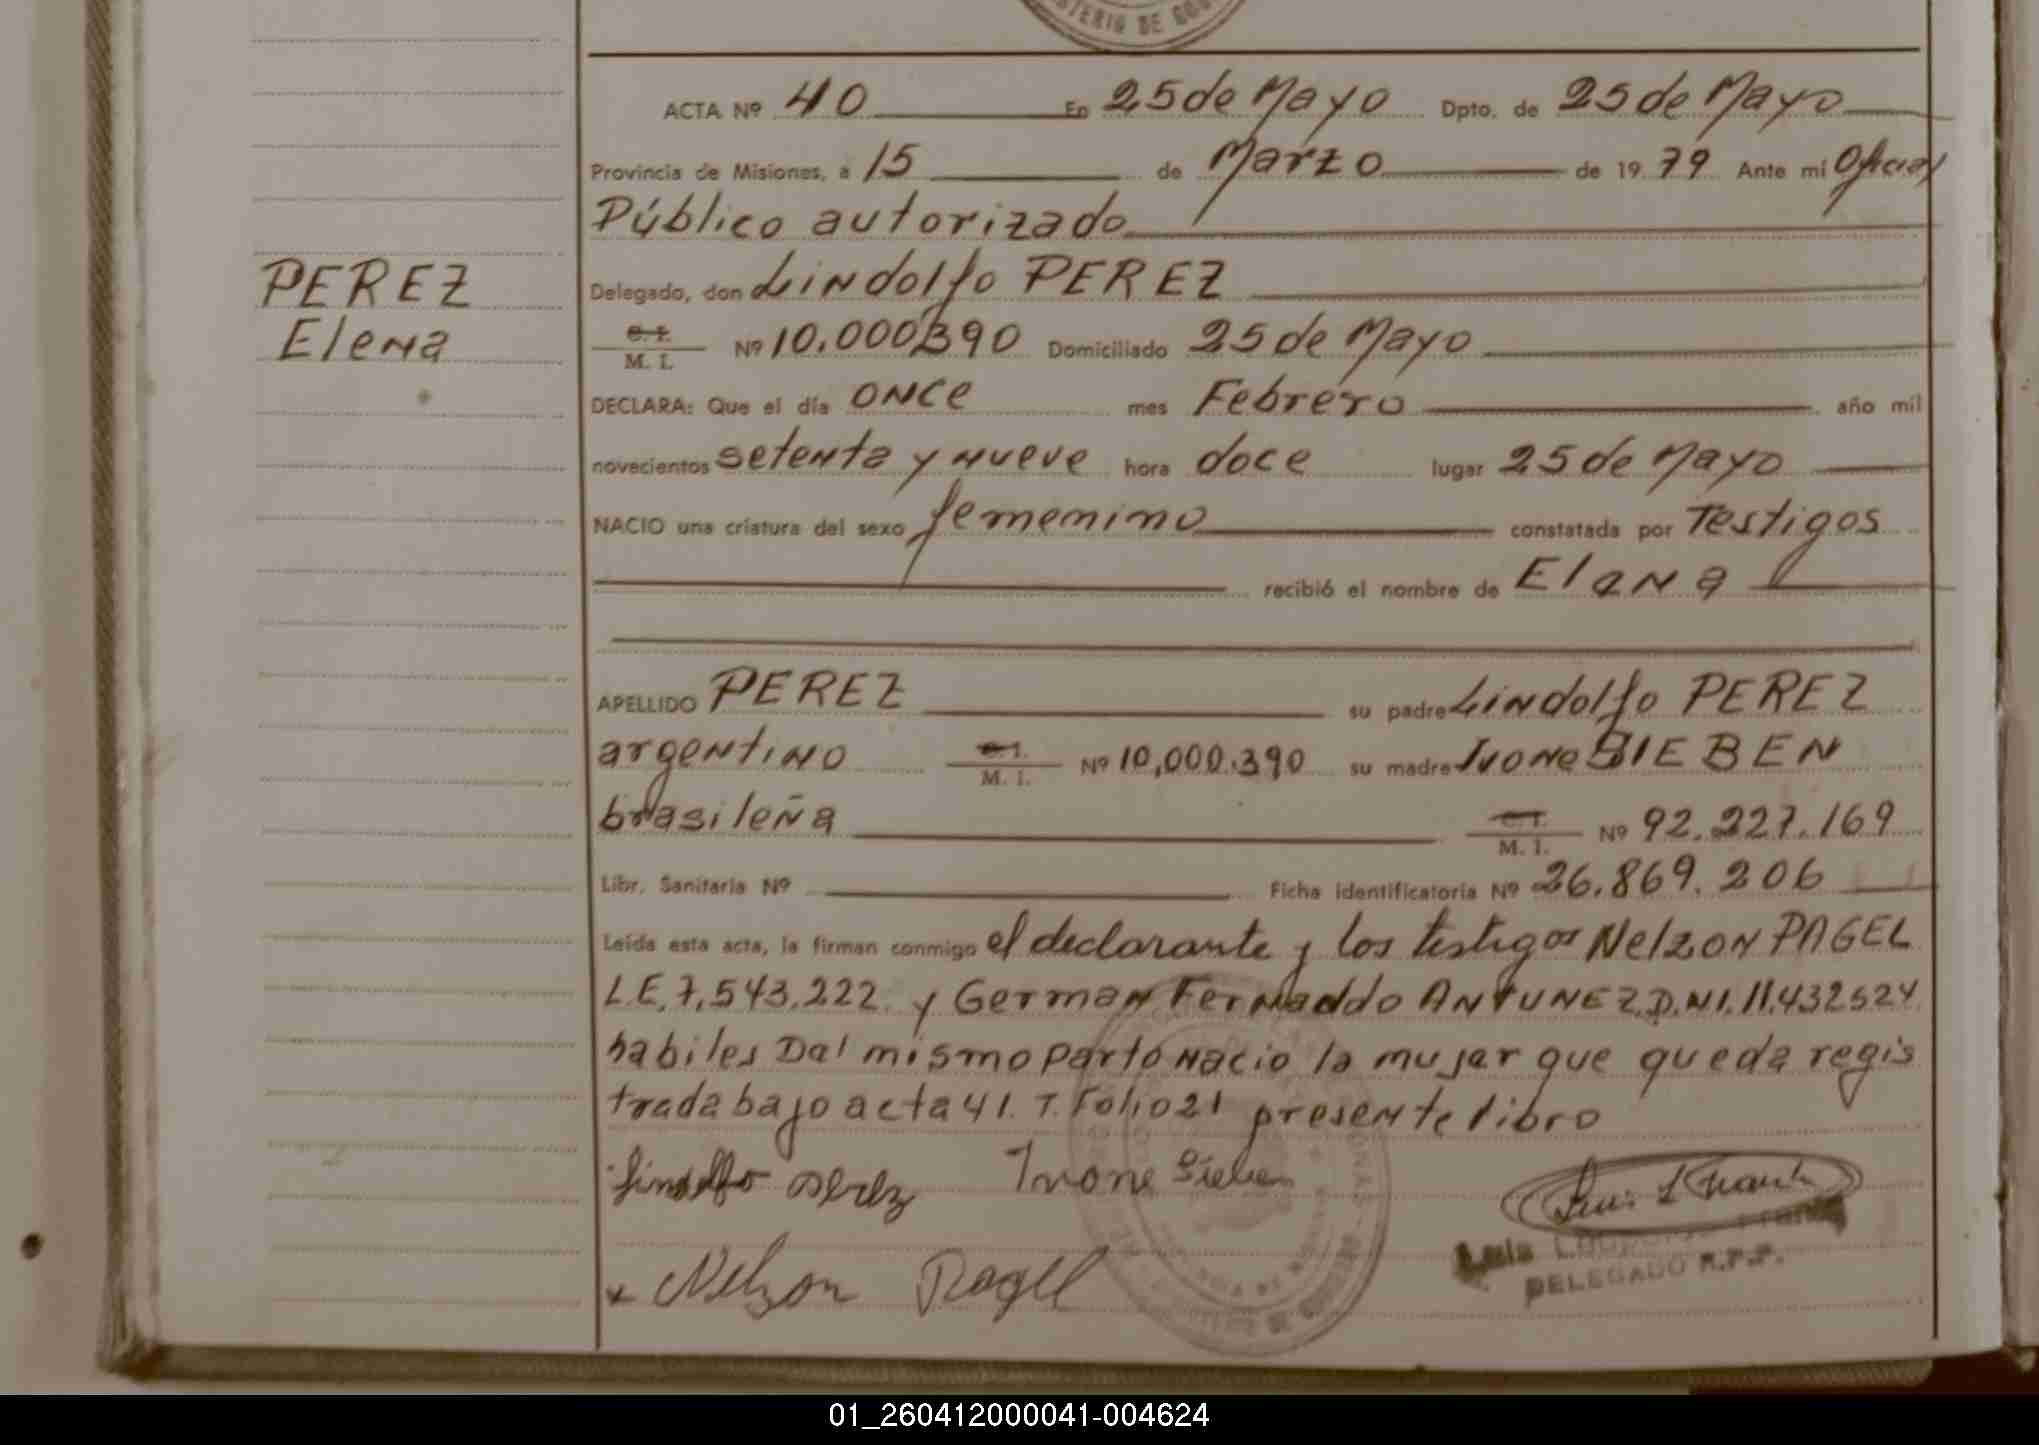 STERIO DE GOB
ACTA Nº 40 En 25 de Mayo Dpto. de 25 de Mayo
Provincia de Misiones, a 15 de Marzo de 19 79 Ante mi Oficial
Público autorizado
PEREZ
Elena
Delegado, don Lindolfo PEREZ
C. I. M. I. Nº 10.000390 Domiciliado 25 de Mayo
DECLARA: Que el día once mes Febrero año mil
novecientos setenta y nueve hora doce lugar 25 de Mayo
NACIO una criatura del sexo femenino constatada por Testigos
recibió el nombre de Elana
APELLIDO PEREZ su padre Lindolfo PEREZ
argentino C. I. M. I. Nº 10,000.390 su madre Ivone SIEBEN
brasileña C. I. M. I. Nº 92.227.169
Libr. Sanitaria Nº Ficha identificatoria Nº 26.869.206
Leída esta acta, la firman conmigo el declarante y los testigos Nelzon PAGEL
L.E.7,543.222. y German Fernaddo ANTUNEZ.D.NI.11.432524
habiles Dal mismo parto nacio la mujar que queda regis
trada bajo acta 41. T. Folio 21 presente libro
Lindolfo Perez Ivone Sieben
Luis
Nelzon Pagel
DELEGADO R.P.P.
01_260412000041-004624